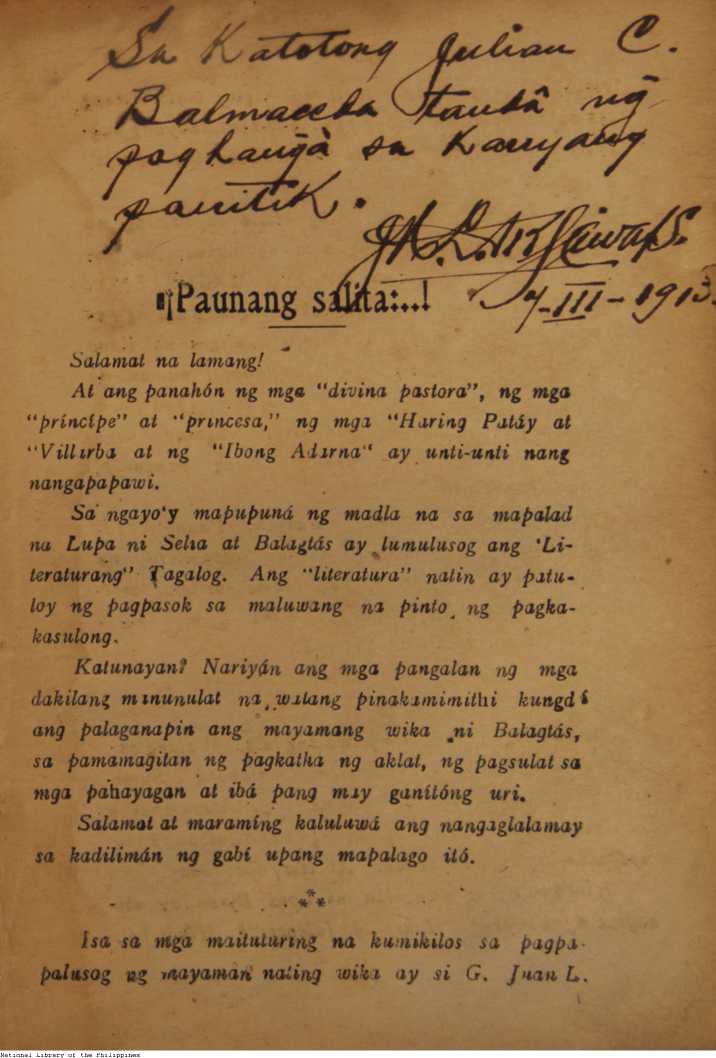 Sa Katotong Julian C.
Balmaceda tandâ ng
paghangà sa Kanyang
panitik.
7-III-1913.
¡Paunang salita:...!
Salamat na lamang!
At ang panahón ng mga "divina pastora", ng mga
"príncipe" at "princesa," ng mga "Haring Patáy at
"Villarba at ng "Ibong Adarna" ay unti-unti nang
nangapapawi.
Sa ngayo'y mapupuná ng madla na sa mapalad
na Lupa ni Selia at Balagtás ay lumulusog ang 'Li-
teraturang" Tagalog. Ang "literatura" natin ay patu-
loy ng pagpasok sa maluwang na pinto ng pagka-
kasulong.
Katunayan? Nariyán ang mga pangalan ng mga
dakilang manunulat na walang pinakamimithi kungdí
ang palaganapin ang mayamang wika ni Balagtás,
sa pamamagitan ng pagkatha ng aklat, ng pagsulat sa
mga pahayagan at ibá pang may ganitóng uri.
Salamat at maraming kaluluwá ang nangaglalamay
sa kadilimán ng gabí upang mapalago itó.
***
Isa sa mga maituturing na kumikilos sa pagpa-
palusog ng mayaman nating wika ay si G. Juan L.
National Library of the Philippines